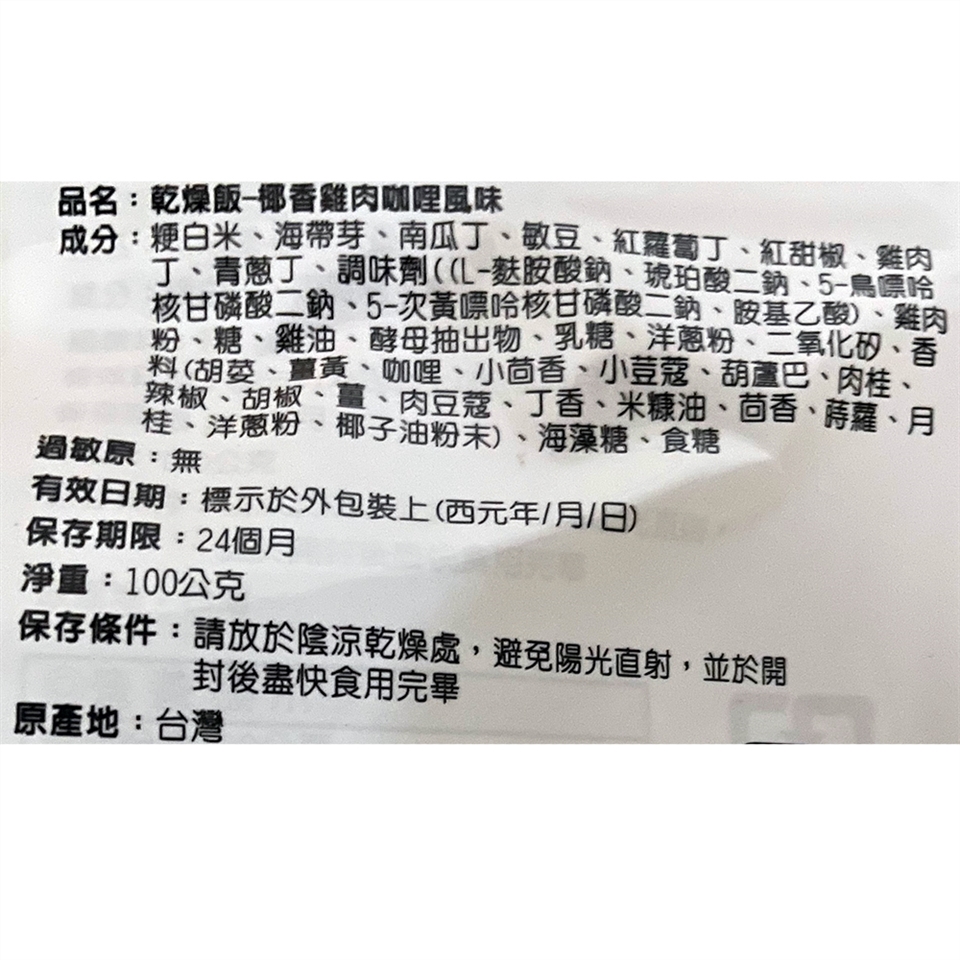 品名：乾燥飯-椰香雞肉咖哩風味
成分：粳白米、海帶芽、南瓜丁、敏豆、紅蘿蔔丁、紅甜椒、雞肉
丁、青蔥丁、調味劑((L-麩胺酸鈉、琥珀酸二鈉、5-鳥嘌呤
核甘磷酸二鈉、5-次黃嘌呤核甘磷酸二鈉、胺基乙酸)、雞肉
粉、糖、雞油、酵母抽出物、乳糖、洋蔥粉、二氧化矽、香
料(胡荽、薑黃、咖哩、小茴香、小荳蔻、胡蘆巴、肉桂、
辣椒、胡椒、薑、肉豆蔻、丁香、米糠油、茴香、蒔蘿、月
桂、洋蔥粉、椰子油粉末)、海藻糖、食糖
過敏原：無
有效日期：標示於外包裝上(西元年/月/日)
保存期限：24個月
淨重：100公克
保存條件：請放於陰涼乾燥處，避免陽光直射，並於開
封後盡快食用完畢
原產地：台灣